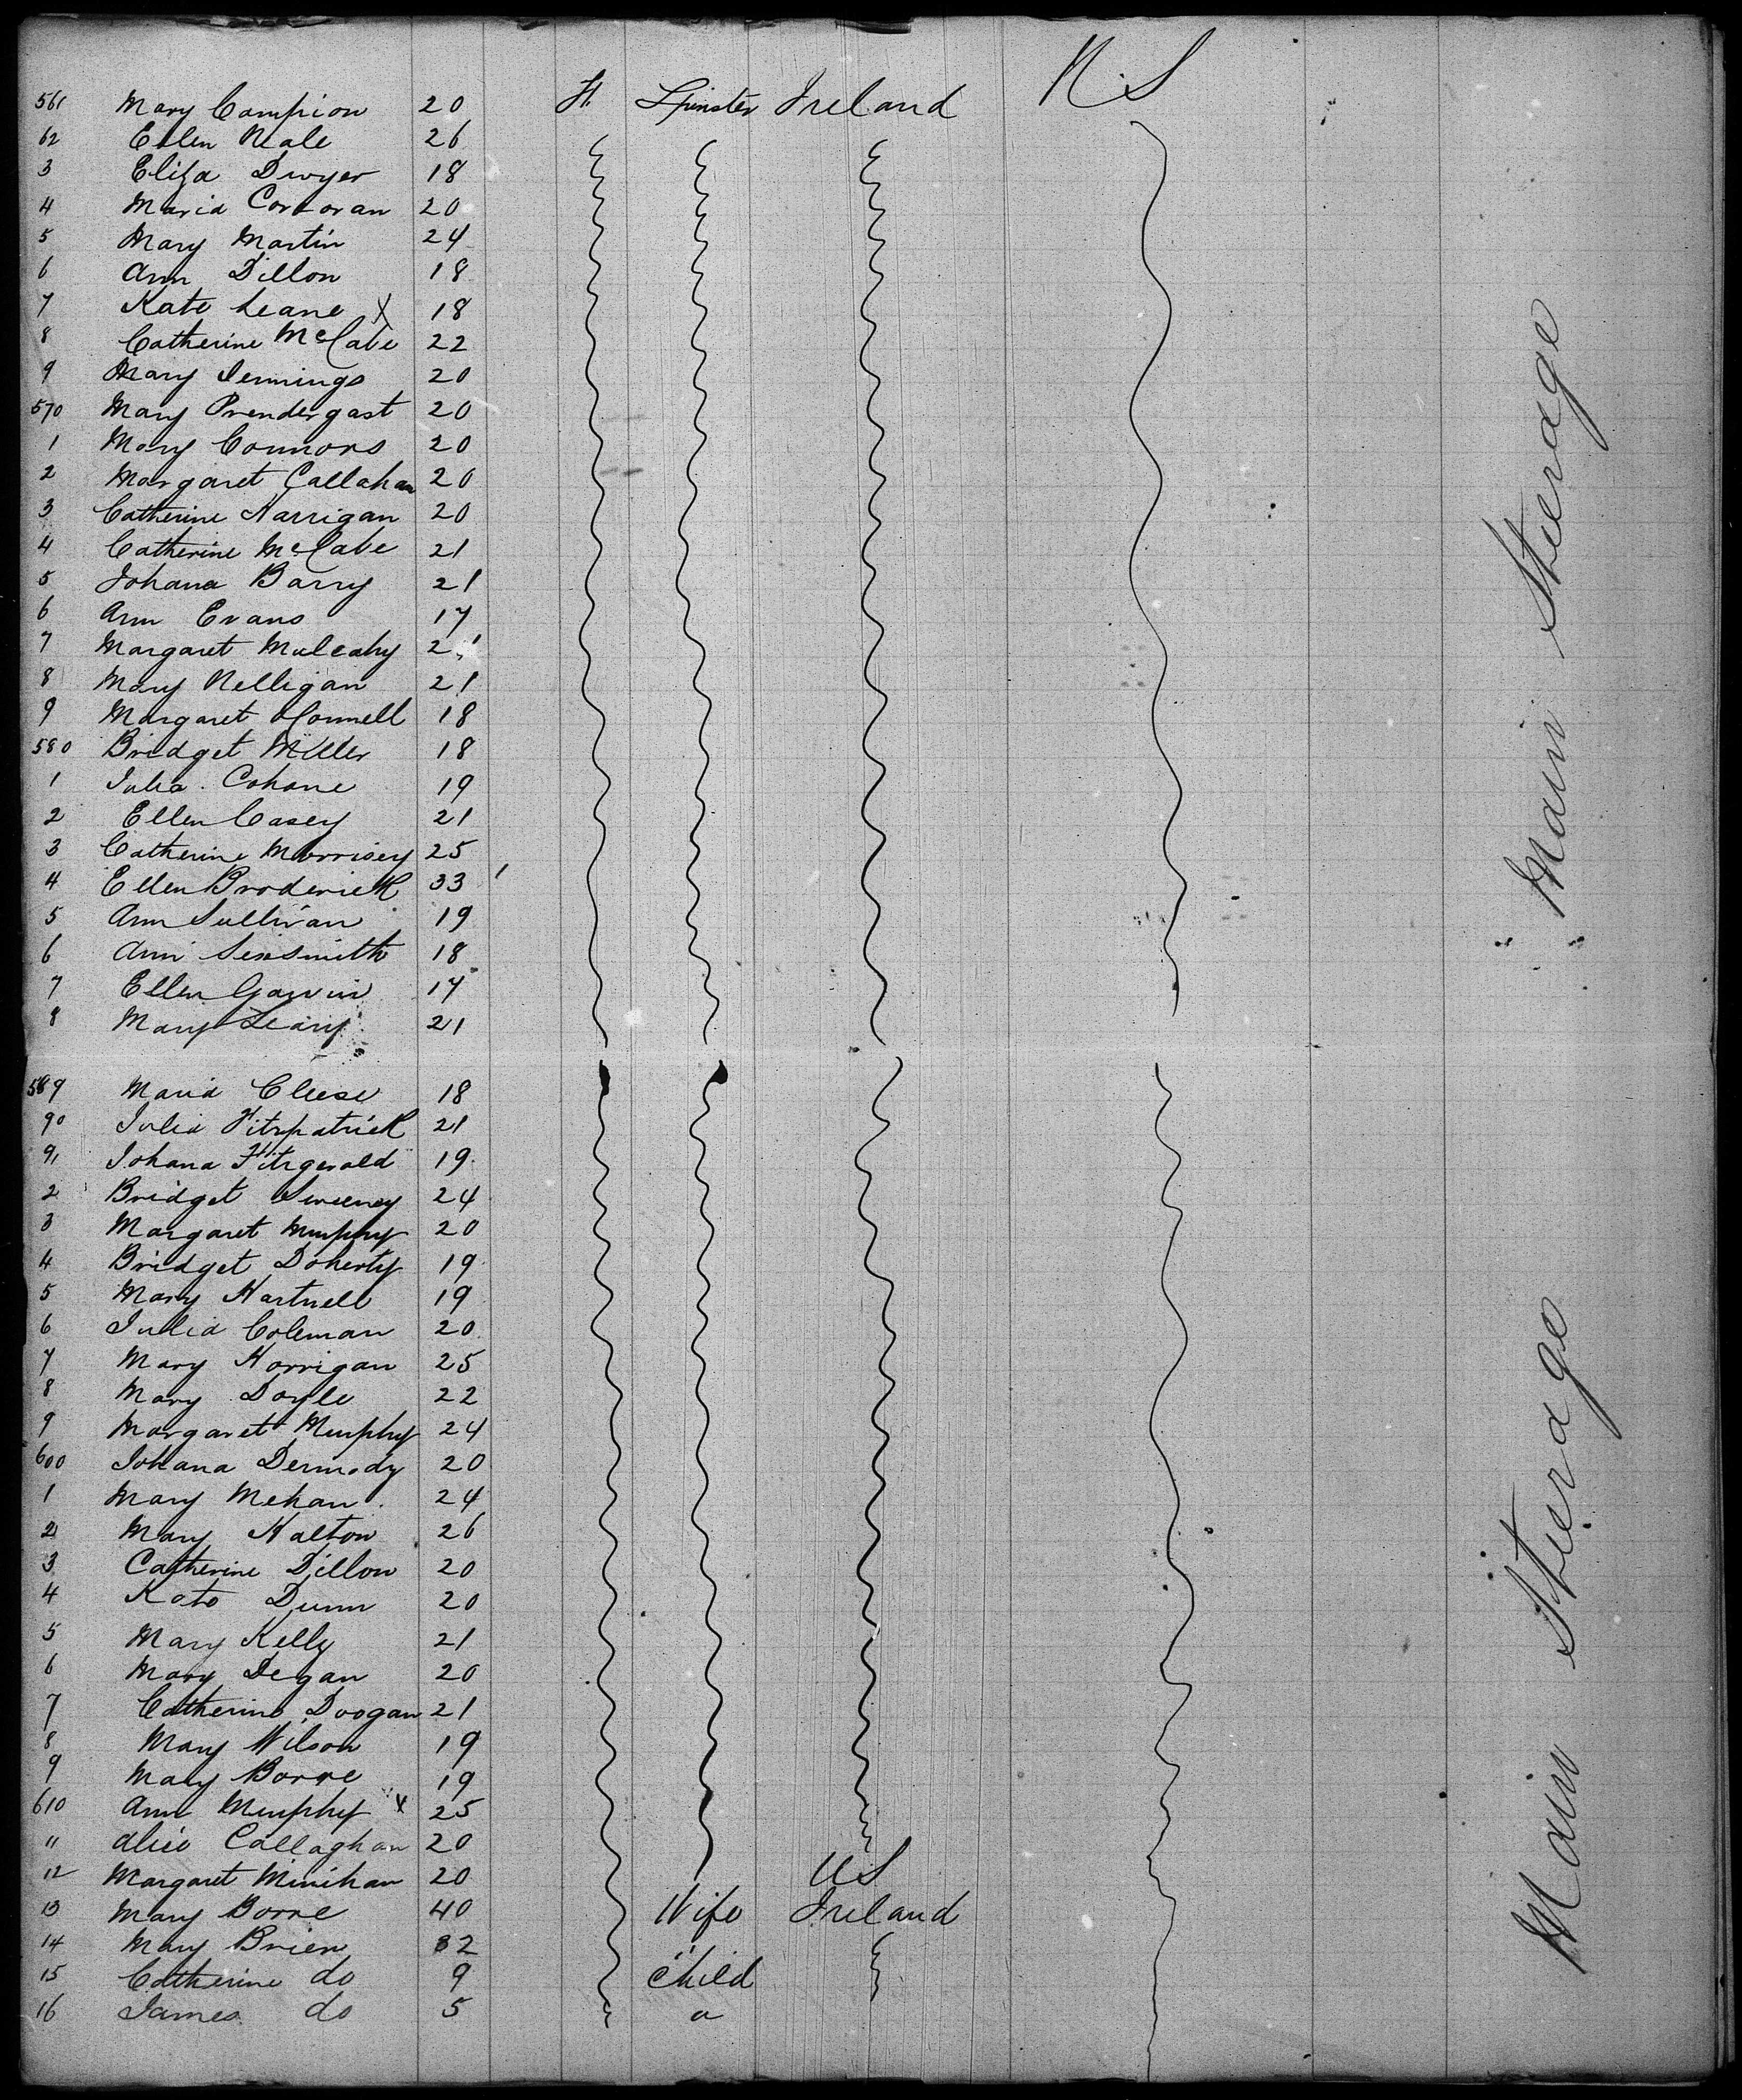 561 Mary Campion 20 F. Spinster Ireland U.S
62 Ellen Neale 26
3 Eliza Dwyer 18
4 Maria Corcoran 20
5 Mary Martin 24
6 Ann Dillon 18
7 Kate Leane X 18
8 Catherine McCabe 22
9 Mary Jennings 20
570 Mary Prendergast 20
1 Mary Connors 20
2 Margaret Callahan 20
3 Catherine Harrigan 20
4 Catherine McCabe 21
5 Johana Barry 21
6 Ann Evans 17
7 Margaret Mulcahy 21
8 Mary Nelligan 21
9 Margaret OConnell 18
580 Bridget Miller 18
1 Julia Cohane 19
2 Ellen Casey 21
3 Catherine Morrisey 25
4 Ellen Broderick 33
5 Ann Sullivan 19
6 Ann Sexsmith 18
7 Ellen Garvin 17
8 Mary Leary 21
Main Steerage
589 Maria Cleese 18
90 Julia Fitzpatrick 21
91 Johana Fitzgerald 19
2 Bridget Sweeney 24
3 Margaret Murphy 20
4 Bridget Doherty 19
5 Mary Hartnell 19
6 Julia Coleman 20
7 Mary Horrigan 25
8 Mary Doyle 22
9 Margaret Murphy 24
600 Johana Dermody 20
1 Mary Mehan 24
2 Mary Halton 26
3 Catherine Dillon 20
4 Kate Dunn 20
5 Mary Kelly 21
6 Mary Degan 20
7 Catherine Doogan 21
8 Mary Wilson 19
9 Mary 19
610 Ann Murphy X 25
11 Alice Callaghan 20
12 Margaret Minihan 20 US
13 Mary 40 Wife Ireland
14 Mary Brien 32 "
15 Catherine do 9 Child
16 James do 5 "
Main Steerage